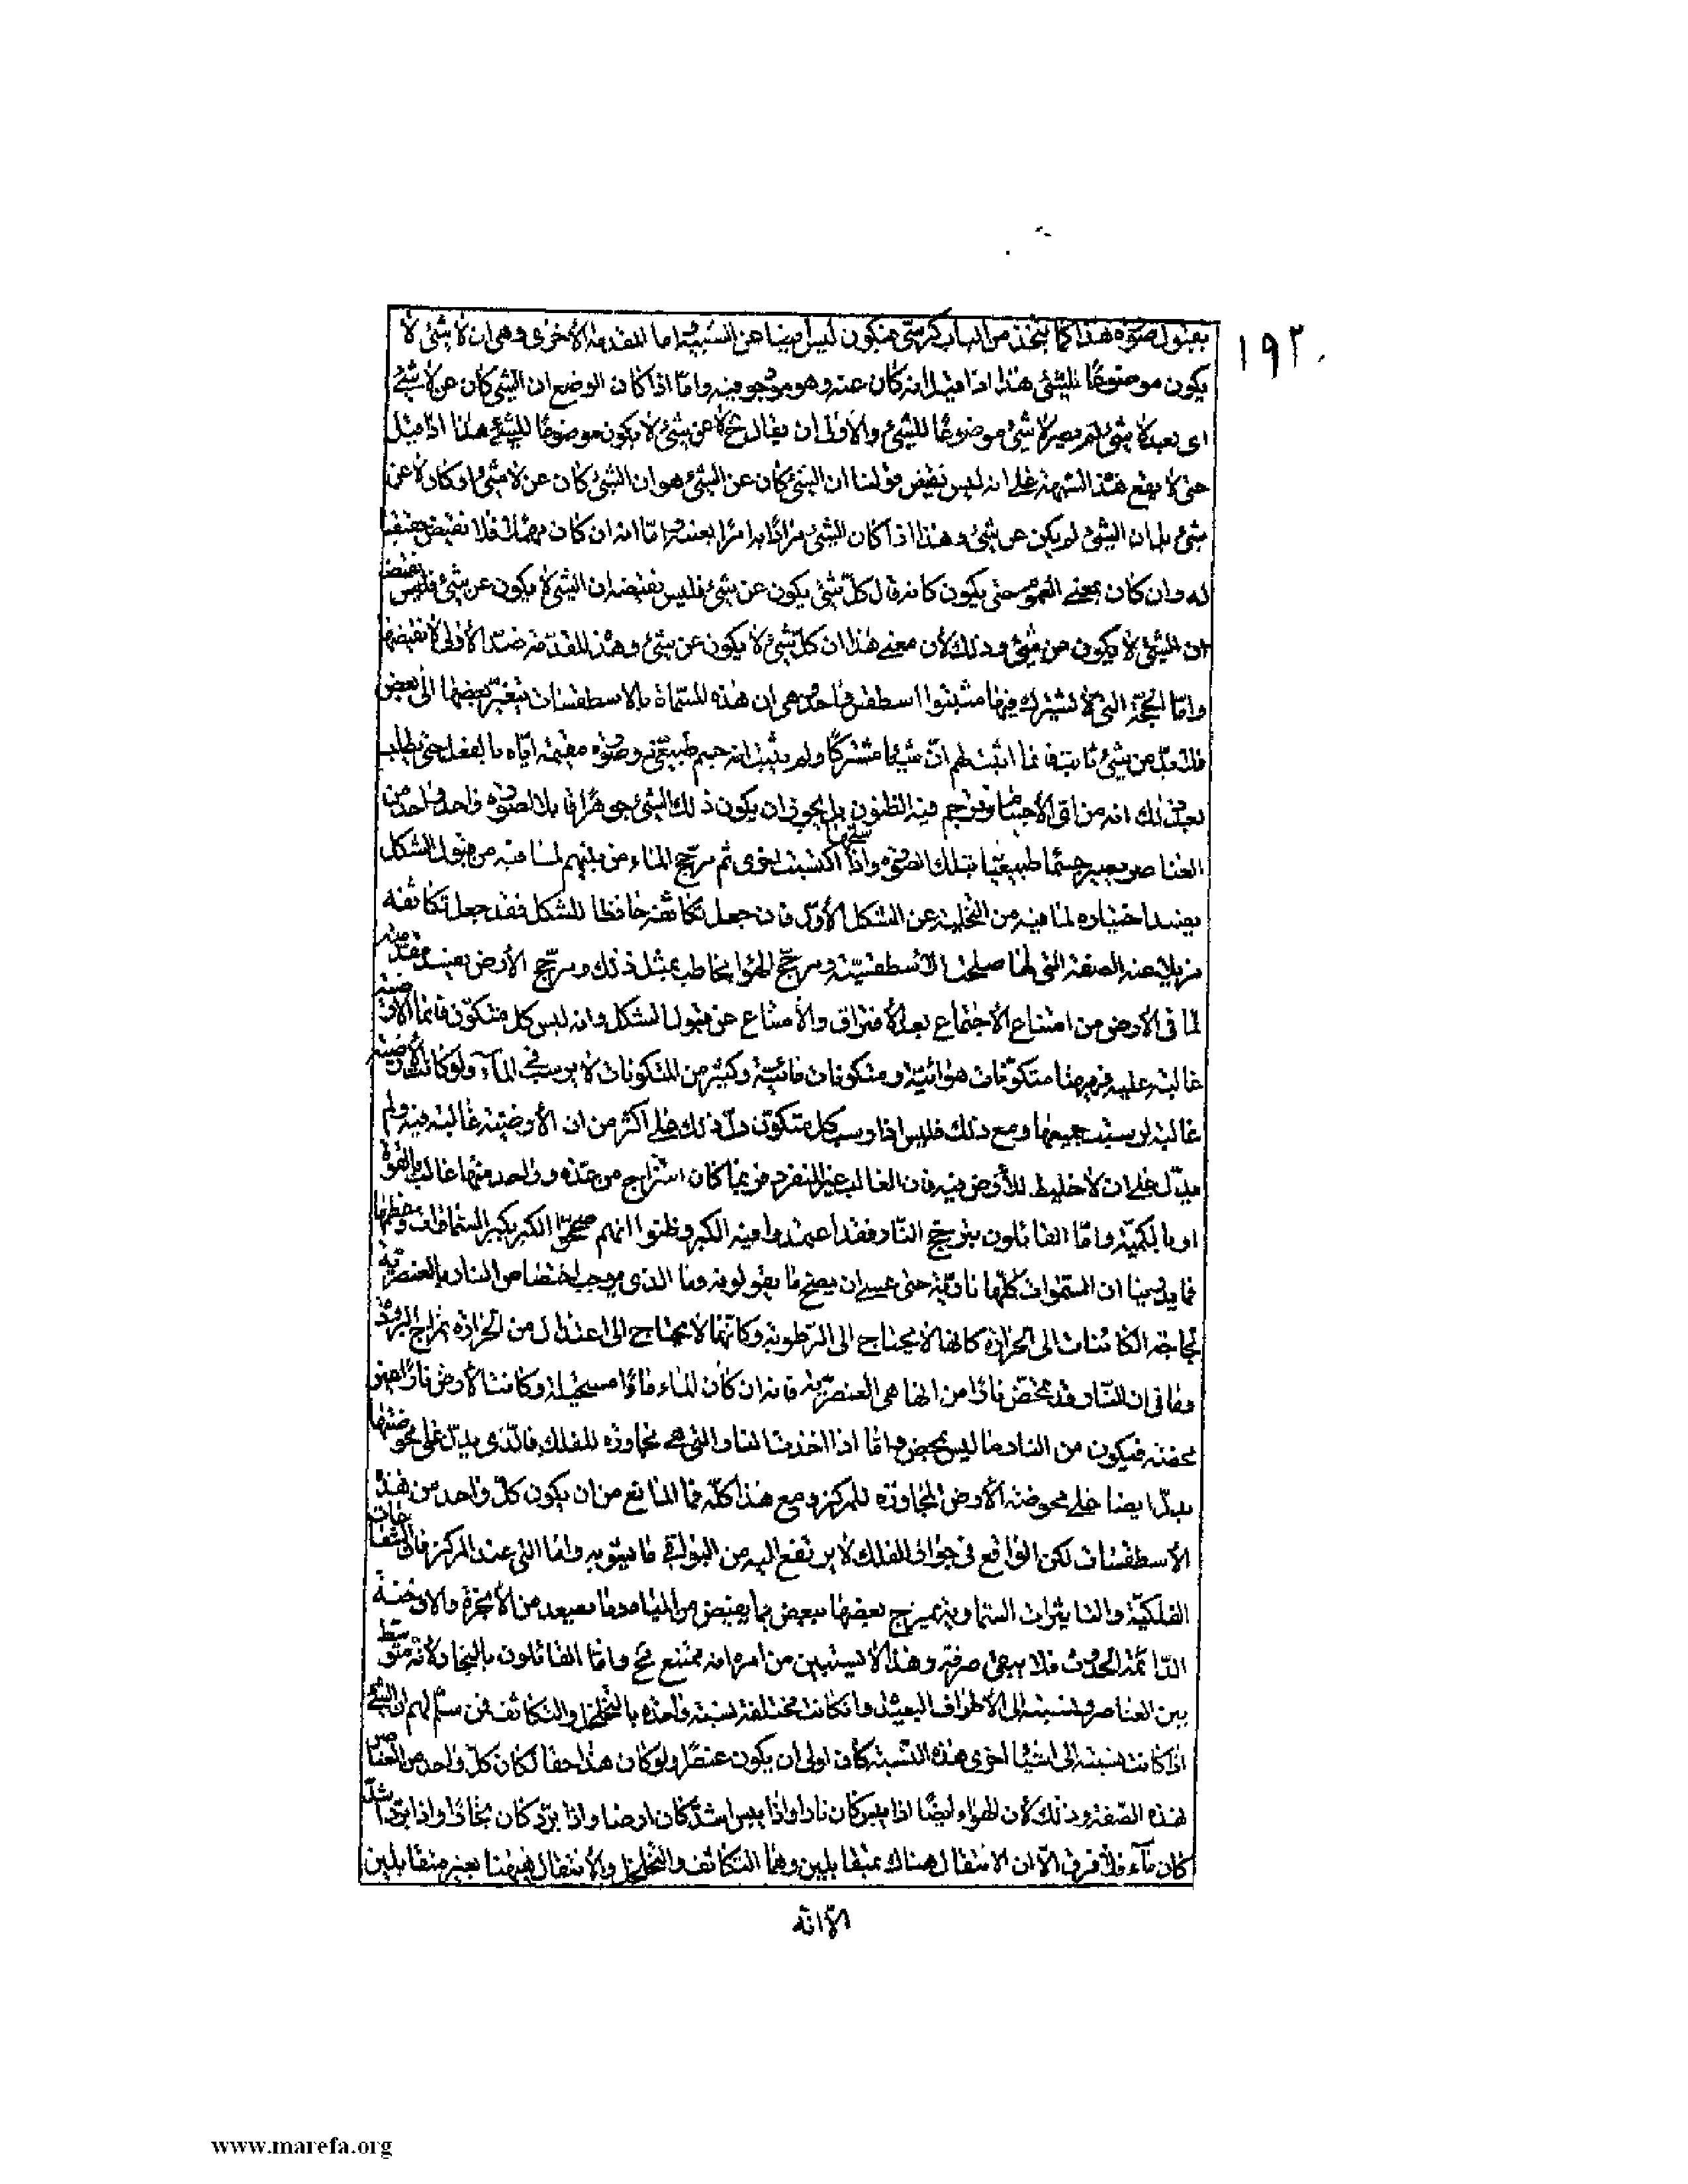 ١٩٢
يقبول صورة هذا كما يتخذ من الباب كرسي فيكون ليس ايضا عن الشيئية اما المقدمة الأخرى وهى ان لا شئ لا
يكون موضوعا للشئ هذا اذا قيل انه كان عنه وهو موجود فيه واما اذا كان الوضع ان الشئ كان عن لا شئ
اى بعد لا شئ لم يصير لا شئ موضوعا للشئ والأولى ان يقال لا عن شئ لا يكون موضوعا للشئ هذا اذا قيل
حتى لا يقع هذه الشبهة على انه ليس نقيض قولنا ان الشئ كان عن الشئ هو ان الشئ كان عن لا شئ او كان لا عن
شئ بل ان الشئ لم يكن عن شئ وهذا اذا كان الشئ مرادا به امرا بعينه اما انه ان كان مهملا فلا نقيض حقيقيا
له وان كان بمعنى العموم حتى يكون كانه قال كل شئ يكون عن شئ فليس نقيضه ان الشئ لا يكون عن شئ فليس نقيض
ان الشئ لا يكون من شئ وذلك لأن معنى هذا ان كل شئ لا يكون عن شئ وهذه المقدمة ضد الأولى لا نقيضها
واما الحجة التى لا تشترك فيها مثبتوا اسطقس واحد وهى ان هذه المسماة بالاسطقسات يتغير بعضها الى بعض
فلا بد من شئ ثابت فانما اثبت لهم ان شيئا مشتركا ولم يثبت انه جسم طبيعى وصورة مقيمة اياه بالفعل حتى يطلب
بعد ذلك انه من اى الأجسام وترجم فيه الظنون بل يجوز ان يكون ذلك الشئ جوهرا قابلا لصورة واحد واحد من
العناصر يصير جسما طبيعيا بتلك الصورة واذا اكتسبت اخرى ثم مرجح الماء من بينهم لما فيه من قبول الشكل
يفسد اختياره لما فيه من التخلية عن الشكل الأول فان جعل تكاثفه حافظا للشكل فقد جعل تكاثفه
مزيلا عنه الصفة التى لها صلحت الأسطقسية ومرجح الهواء يخاطب بمثل ذلك ومرجح الأرض يفسد مقدمته
لما فى الأرض من امتناع الأجتماع بعد الأفتراق والأمتناع عن قبول الشكل وانه ليس كل متكون فانما الأرضية
غالبة عليه فربما متكونات هوائية ومتكونات مائية وكثير من المتكونات لا يرسب فى الماء ولو كانت الأرضية
غالبة لرسبت جميعها ومع ذلك فليس اذا رسب كل متكون دل ذلك على اكثر من ان الأرضية غالبة فيه ولم
يدل على ان لا خليط للأرض فيه فان الغالب غير المنفرد فربما كان امتزاج من عدة وواحد منها غالب بالقوة
او بالكمية واما القائلون بترجيح النار فقد اعتمدوا فيه الكبر وظنوا انهم صححوا الكبر بكبر السماوات وعظمها
فما يدرينا ان السموات كلها نارية حتى عسى ان يصح ما يقولونه وما الذى يوجب اختصاص النار بالعنصرية
لحاجة الكائنات الى الحرارة كانها لا يحتاج الى الرطوبة وكانها لا يحتاج الى اعتدال من الحرارة بمزاج البرودة
وما فى ان النار قد تمحض نارا من انها هى العنصرية فانه ان كان الماء ماءا مستحيلة وكانت الأرض نارا غير
محضة فيكون من النار ما ليس بمحض واما اذا اخذت النار التى هى مجاورة للفلك فالذى يدل على محوضتها
يدل ايضا على محوضة الأرض المجاورة للمركز ومع هذا كله فما المانع من ان يكون كل واحد من هذه
الأسطقسات لكن الواقع فى جوار الفلك لا يرتفع اليه من البواقى ما يشوبه واما التى عند المركز فالشعاعات
الفلكية والتاثيرات السماوية يمزج بعضها ببعض بما يفيض من المياه وما يصعد من الأبخرة والادخنة
الدائمة الحدوث فلا يبقى صرفة وهذا لا يستبين من امره انه ممتنع ثم واما القائلون بالبخار ولانه متوسط
بين العناصر ونسبته الى الأطراف البعيدة وان كانت مختلفة نسبة واحدة بالتخلخل والتكاثف فمن سلم لهم ان الشئ
اذا كانت نسبته الى اشياء اخرى هذه النسبة كان اولى ان يكون عنصرا ولو كان هذا حقا لكان كل واحد من العناصر
بهذه الصفة وذلك لان الهواء ايضا اذا يبس كان نارا واذا يبس اشد كان ارضا واذا برد كان بخارا واذا برد اشد
كان ماء فلا فرق الا ان الانتقال هناك بمتقابلين وهما التكاثف والتخلخل والأنتقال هيهنا بغير متقابلين
الا انه
www.marefa.org